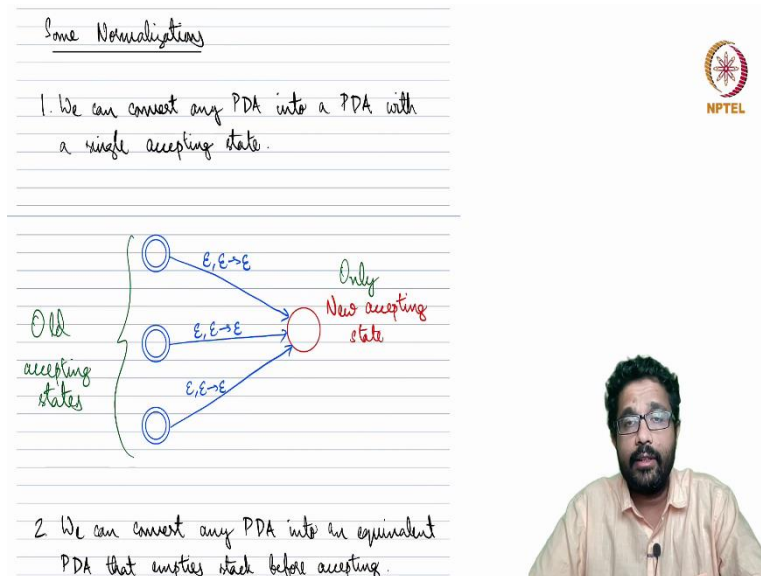 Some Normalizations
NPTEL
1. We can convert any PDA into a PDA with
a single accepting state.
ε, ε→ε
Only
New accepting
state
ε, ε→ε
Old
accepting
states
ε, ε→ε
2 We can convert any PDA into an equivalent
PDA that empties stack before accepting.